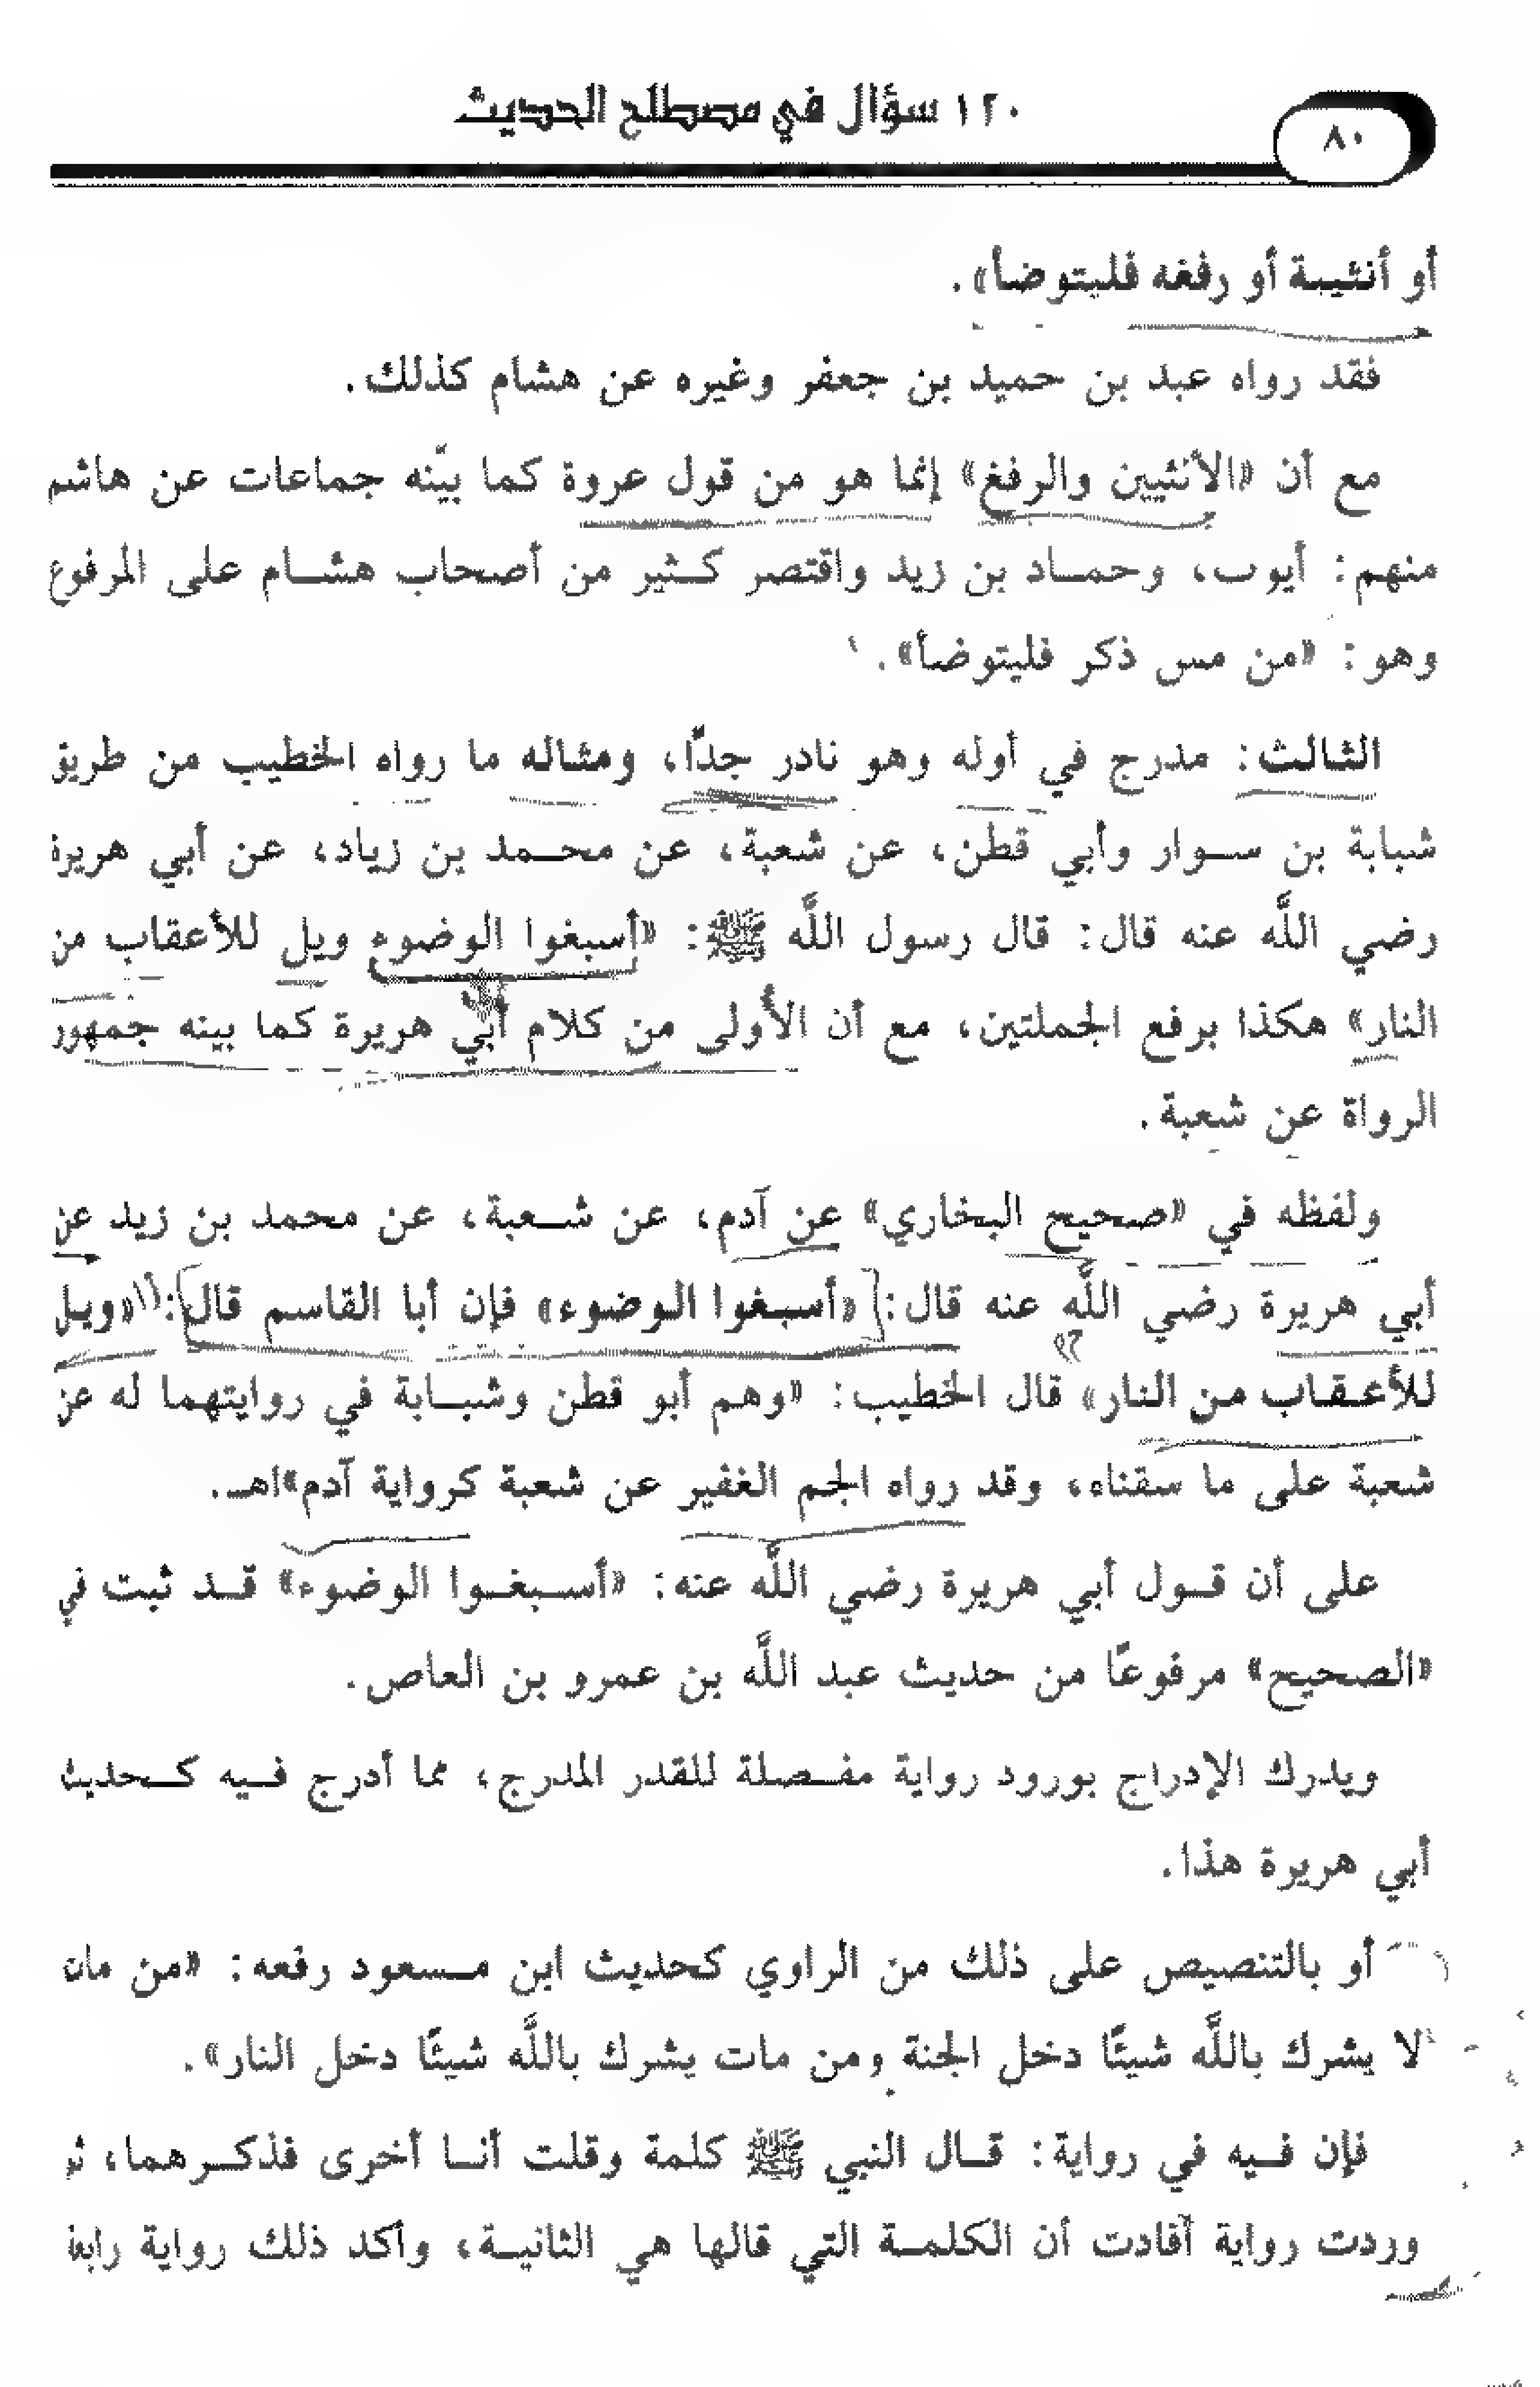 ١٢٠ سؤال في مصطلح الحديث
٨٠
أو أنثيبة أو رفغه فليتوضأ».
فقد رواه عبد بن حميد بن جعفر وغيره عن هشام كذلك.
مع أن «الأنثيين والرفغ» إنما هو من قول عروة كما بيّنه جماعات عن هاشم
منهم: أيوب، وحماد بن زيد واقتصر كثير من أصحاب هشام على المرفوع
وهو: «من مس ذكر فليتوضأ».
الثالث: مدرج في أوله وهو نادر جدًّا، ومثاله ما رواه الخطيب من طريق
شبابة بن سوار وأبي قطن، عن شعبة، عن محمد بن زياد، عن أبي هريرة
رضي اللَّه عنه قال: قال رسول اللَّه ﷺ: «أسبغوا الوضوء ويل للأعقاب من
النار» هكذا برفع الجملتين، مع أن الأُولى من كلام أبي هريرة كما بينه جمهور
الرواة عن شعبة.
ولفظه في «صحيح البخاري» عن آدم، عن شعبة، عن محمد بن زيد عن
أبي هريرة رضي اللَّه عنه قال: «أسبغوا الوضوء» فإن أبا القاسم قال: «ويل
للأعقاب من النار» قال الخطيب: «وهم أبو قطن وشبابة في روايتهما له عن
شعبة على ما سقناه، وقد رواه الجم الغفير عن شعبة كرواية آدم»اهـ.
على أن قول أبي هريرة رضي اللَّه عنه: «أسبغوا الوضوء» قد ثبت في
«الصحيح» مرفوعًا من حديث عبد اللَّه بن عمرو بن العاص.
ويدرك الإدراج بورود رواية مفصلة للقدر المدرج، مما أدرج فيه كحديث
أبي هريرة هذا.
أو بالتنصيص على ذلك من الراوي كحديث ابن مسعود رفعه: «من مات
لا يشرك باللَّه شيئًا دخل الجنة ومن مات يشرك باللَّه شيئًا دخل النار».
فإن فيه في رواية: قال النبي ﷺ كلمة وقلت أنا أخرى فذكرهما، ثم
وردت رواية أفادت أن الكلمة التي قالها هي الثانية، وأكد ذلك رواية رابعة